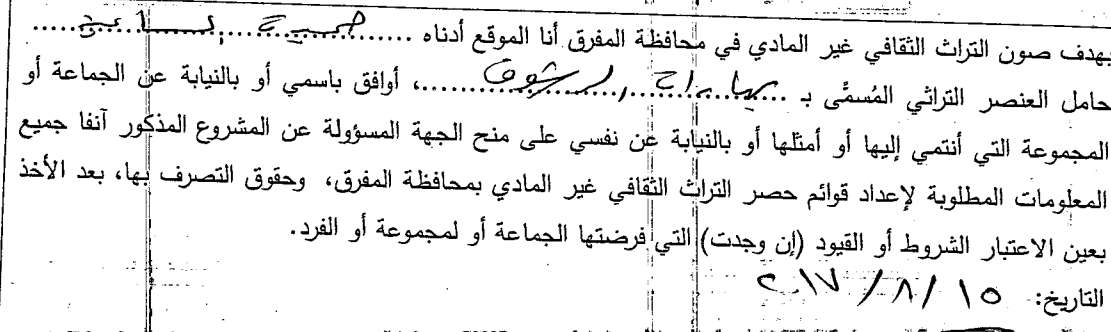 بهدف صون التراث الثقافي غير المادي في محافظة المفرق أنا الموقع أدناه ................
حامل العنصر التراثي المُسمّى بـ ................، أوافق باسمي أو بالنيابة عن الجماعة أو
المجموعة التي أنتمي إليها أو أمثلها أو بالنيابة عن نفسي على منح الجهة المسؤولة عن المشروع المذكور آنفا جميع
المعلومات المطلوبة لإعداد قوائم حصر التراث الثقافي غير المادي بمحافظة المفرق، وحقوق التصرف بها، بعد الأخذ
بعين الاعتبار الشروط أو القيود (إن وجدت) التي فرضتها الجماعة أو لمجموعة أو الفرد.
التاريخ: ١٥ / ٨ / ٢٠١٧